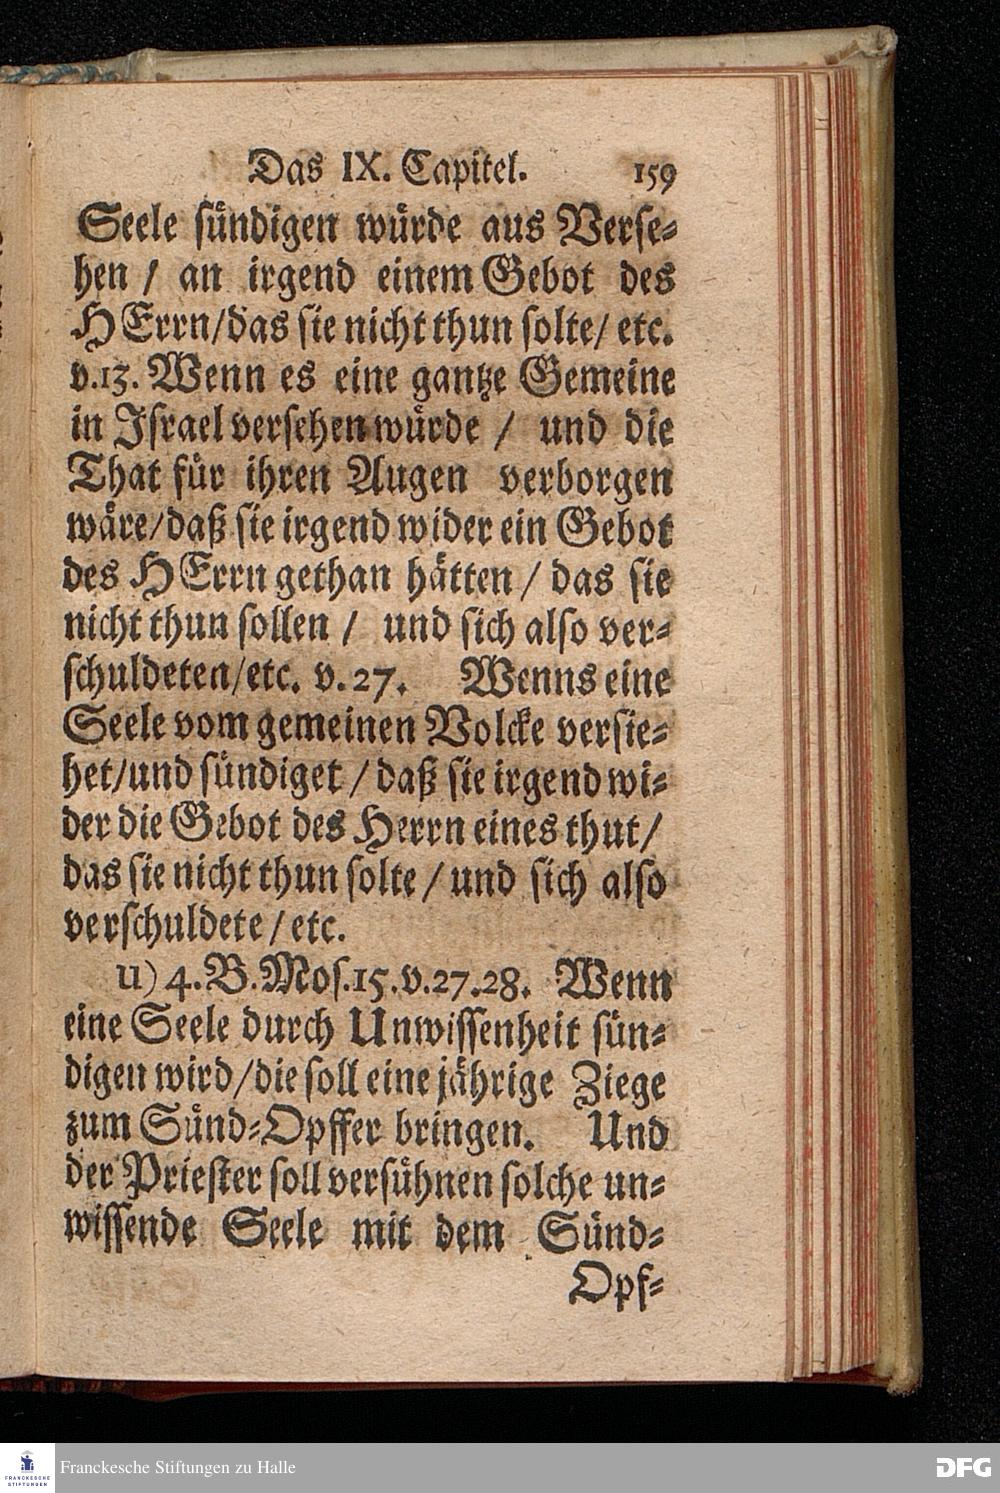 Das IX. Capitel. 159
Seele sündigen würde aus Verse⸗
hen / an irgend einem Gebot des
HErrn/das sie nicht thun solte/ etc.
v.13. Wenn es eine gantze Gemeine
in Israel versehen würde / und die
That für ihren Augen verborgen
wäre/daß sie irgend wider ein Gebot
des HErrn gethan hätten / das sie
nicht thun sollen / und sich also ver⸗
schuldeten/etc. v.27. Wenns eine
Seele vom gemeinen Volcke versie⸗
het/und sündiget / daß sie irgend wi⸗
der die Gebot des Herrn eines thut/
das sie nicht thun solte / und sich also
verschuldete / etc.
u) 4.B.Mos.15.v.27.28. Wenn
eine Seele durch Unwissenheit sün⸗
digen wird/die soll eine jährige Ziege
zum Sünd⸗Opffer bringen. Und
der Priester soll versühnen solche un⸗
wissende Seele mit dem Sünd⸗
Opf⸗
FRANCKESCHE
STIFTUNGEN
Franckesche Stiftungen zu Halle
DFG